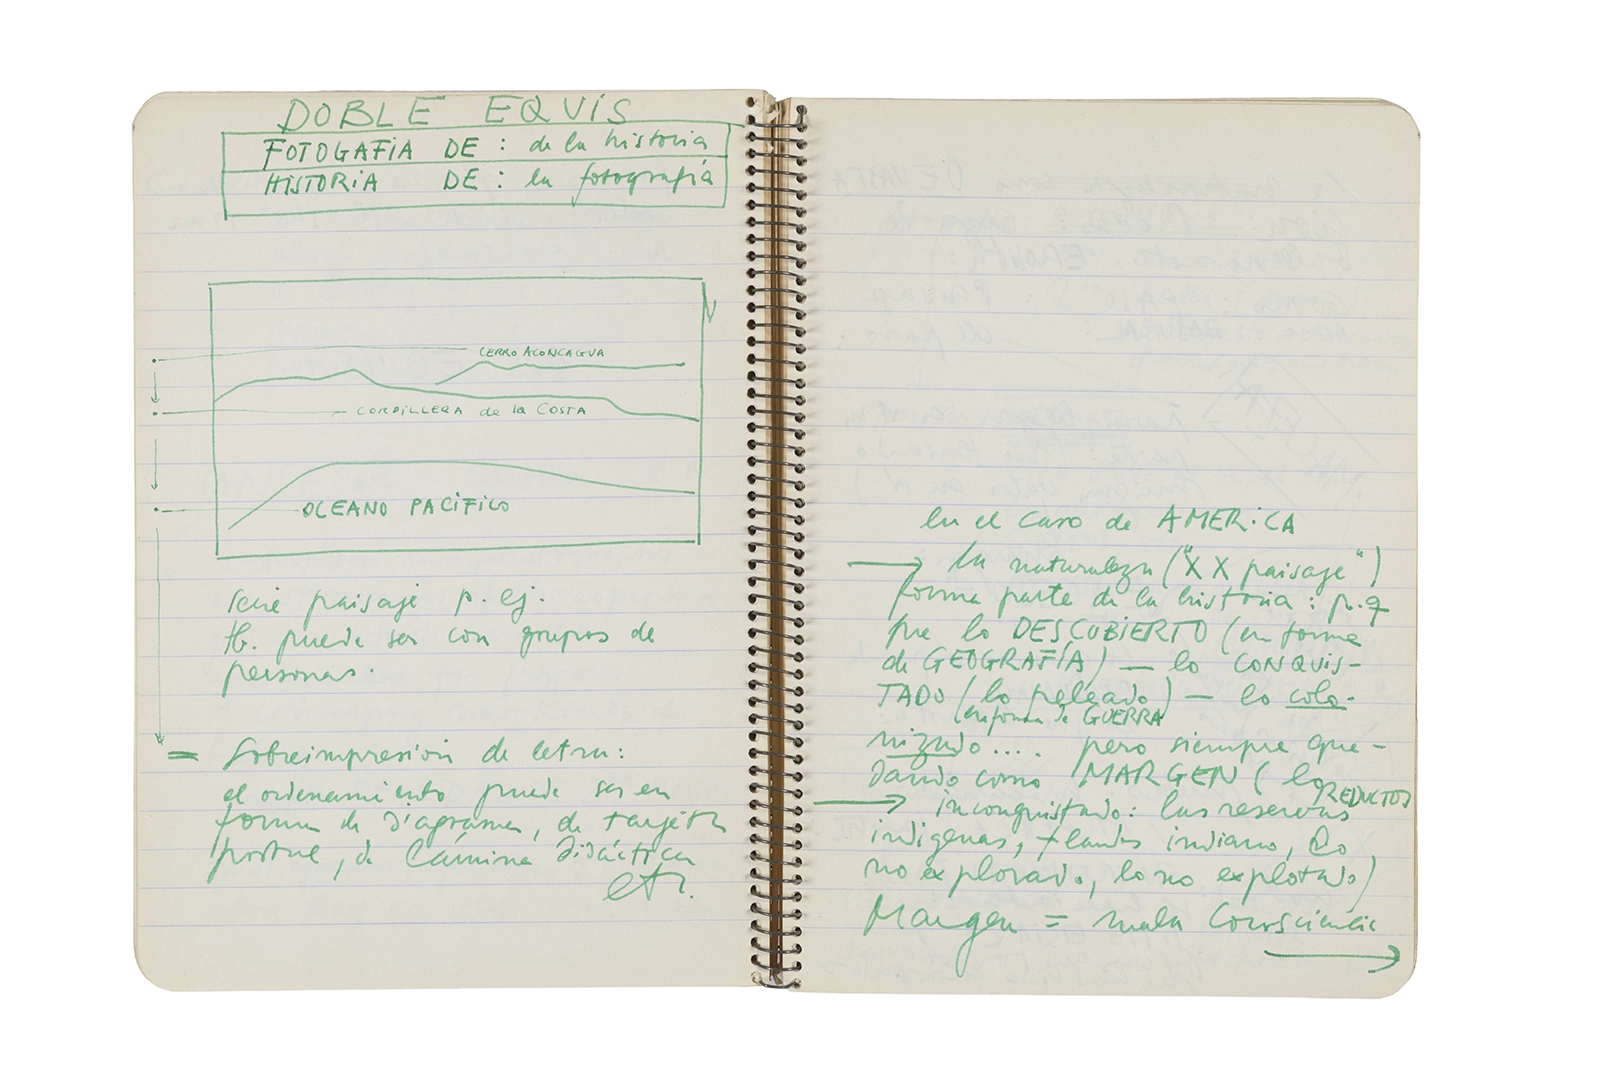 DOBLE EQUIS
FOTOGAFIA DE : de la historia
HISTORIA DE : la fotografía
CERRO ACONCAGUA
CORDILLERA de la COSTA
OCEANO PACIFICO
serie paisaje p. ej.
tb. puede ser con grupos de
personas.
= Sobreimpresión de letra:
el ordenamiento puede ser en
forma de diagrama, de tarjeta
postal, de lámina didáctica
etc.
en el caso de AMERICA
la naturaleza ("X X paisaje")
forma parte de la historia : p.q
fue lo DESCUBIERTO (en forma
de GEOGRAFÍA) — lo CONQUIS-
TADO (lo peleado) — lo colo-
(en forma de GUERRA
nizado .... pero siempre que-
dando como MARGEN ( lo
REDUCTOS
inconquistado: las reservas
indigenas, indiano, lo
no explorado, lo no explotado)
Margen = mala consciencia